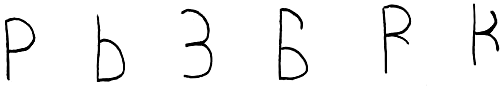 P b 3 Б R K